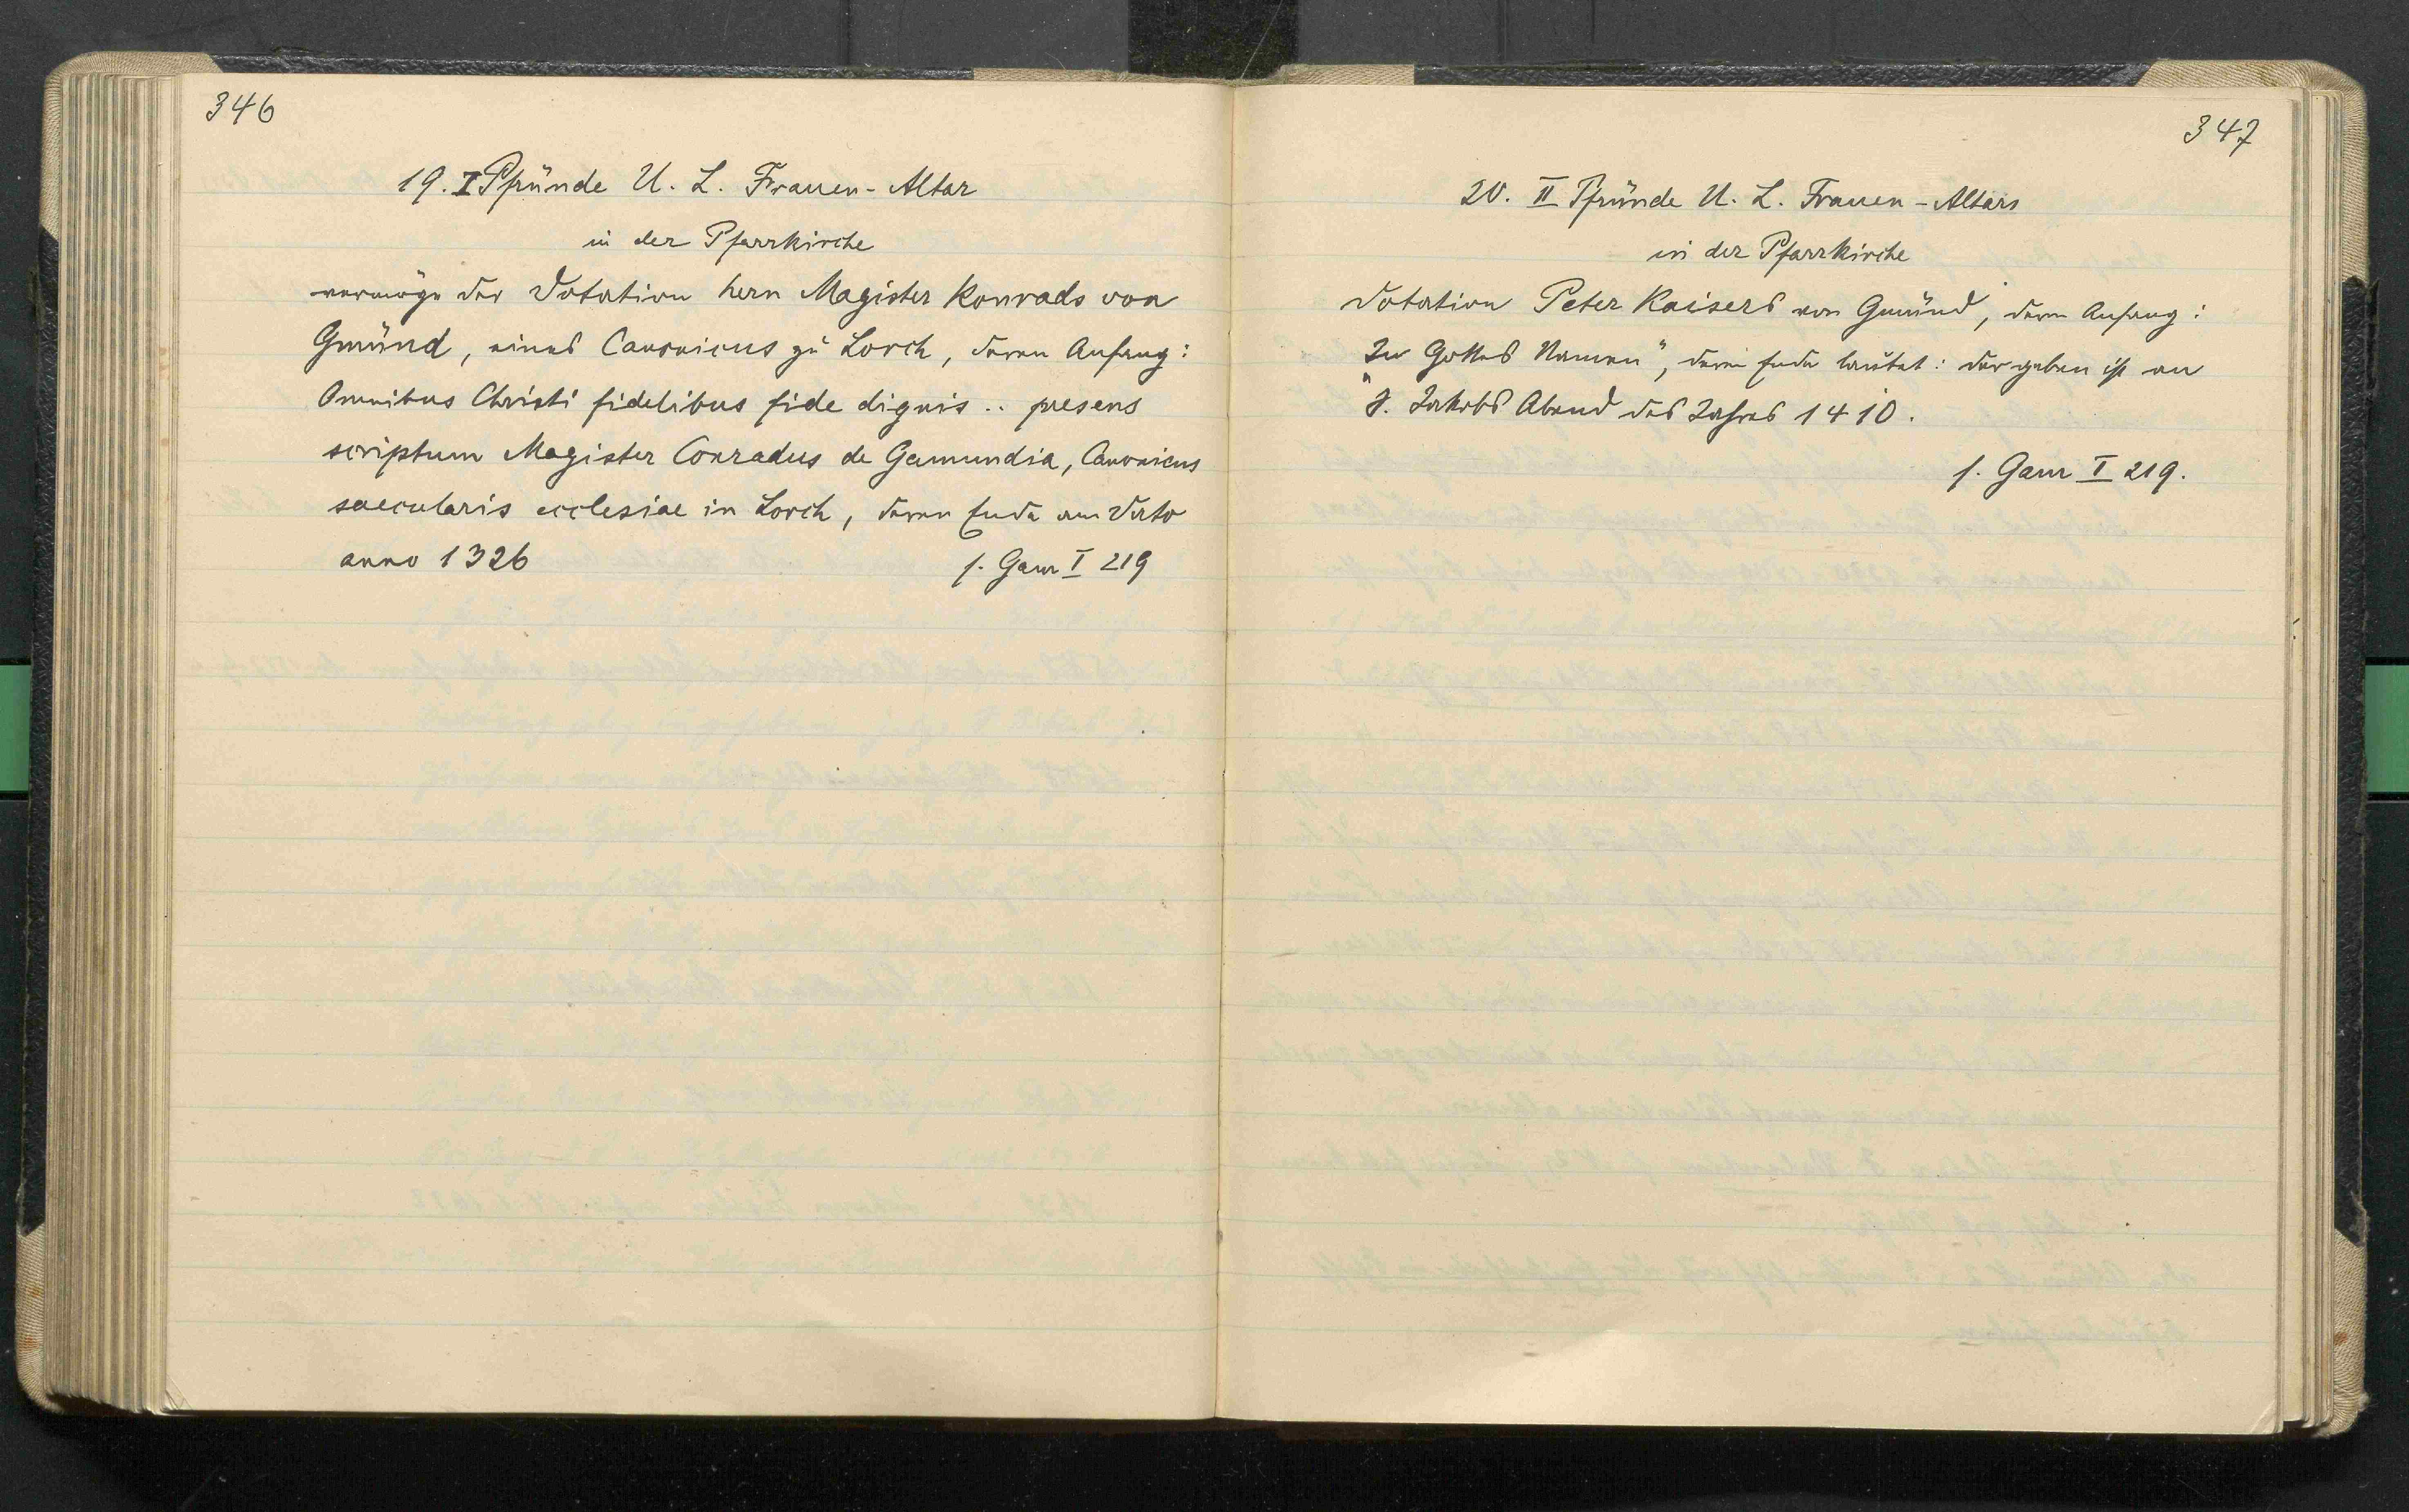 346
19. I Pfründe U. L. Frauen-Altar
in der Pfarrkirche
vermöge der Dotation hern Magister Konrads von
Gmünd, eines Canonicus zu Lorch, deren Anfang:
Omnibus Christi fidelibus fide dignis .. presens
scriptum Magister Conradus de Gamundia, Canonicus
saecularis ecclesiae in Lorch, deren Ende am Dato
anno 1326 s. Gam I 219
347
20. II Pfründe U. L. Frauen-Altars
in der Pfarrkirche
Dotation Peter Kaisers von Gmünd, deren Anfang:
„In Gottes Namen", deren Ende lautet: der geben ist an
S. Jakobs Abend des Jahres 1410.
s. Gam I 219.